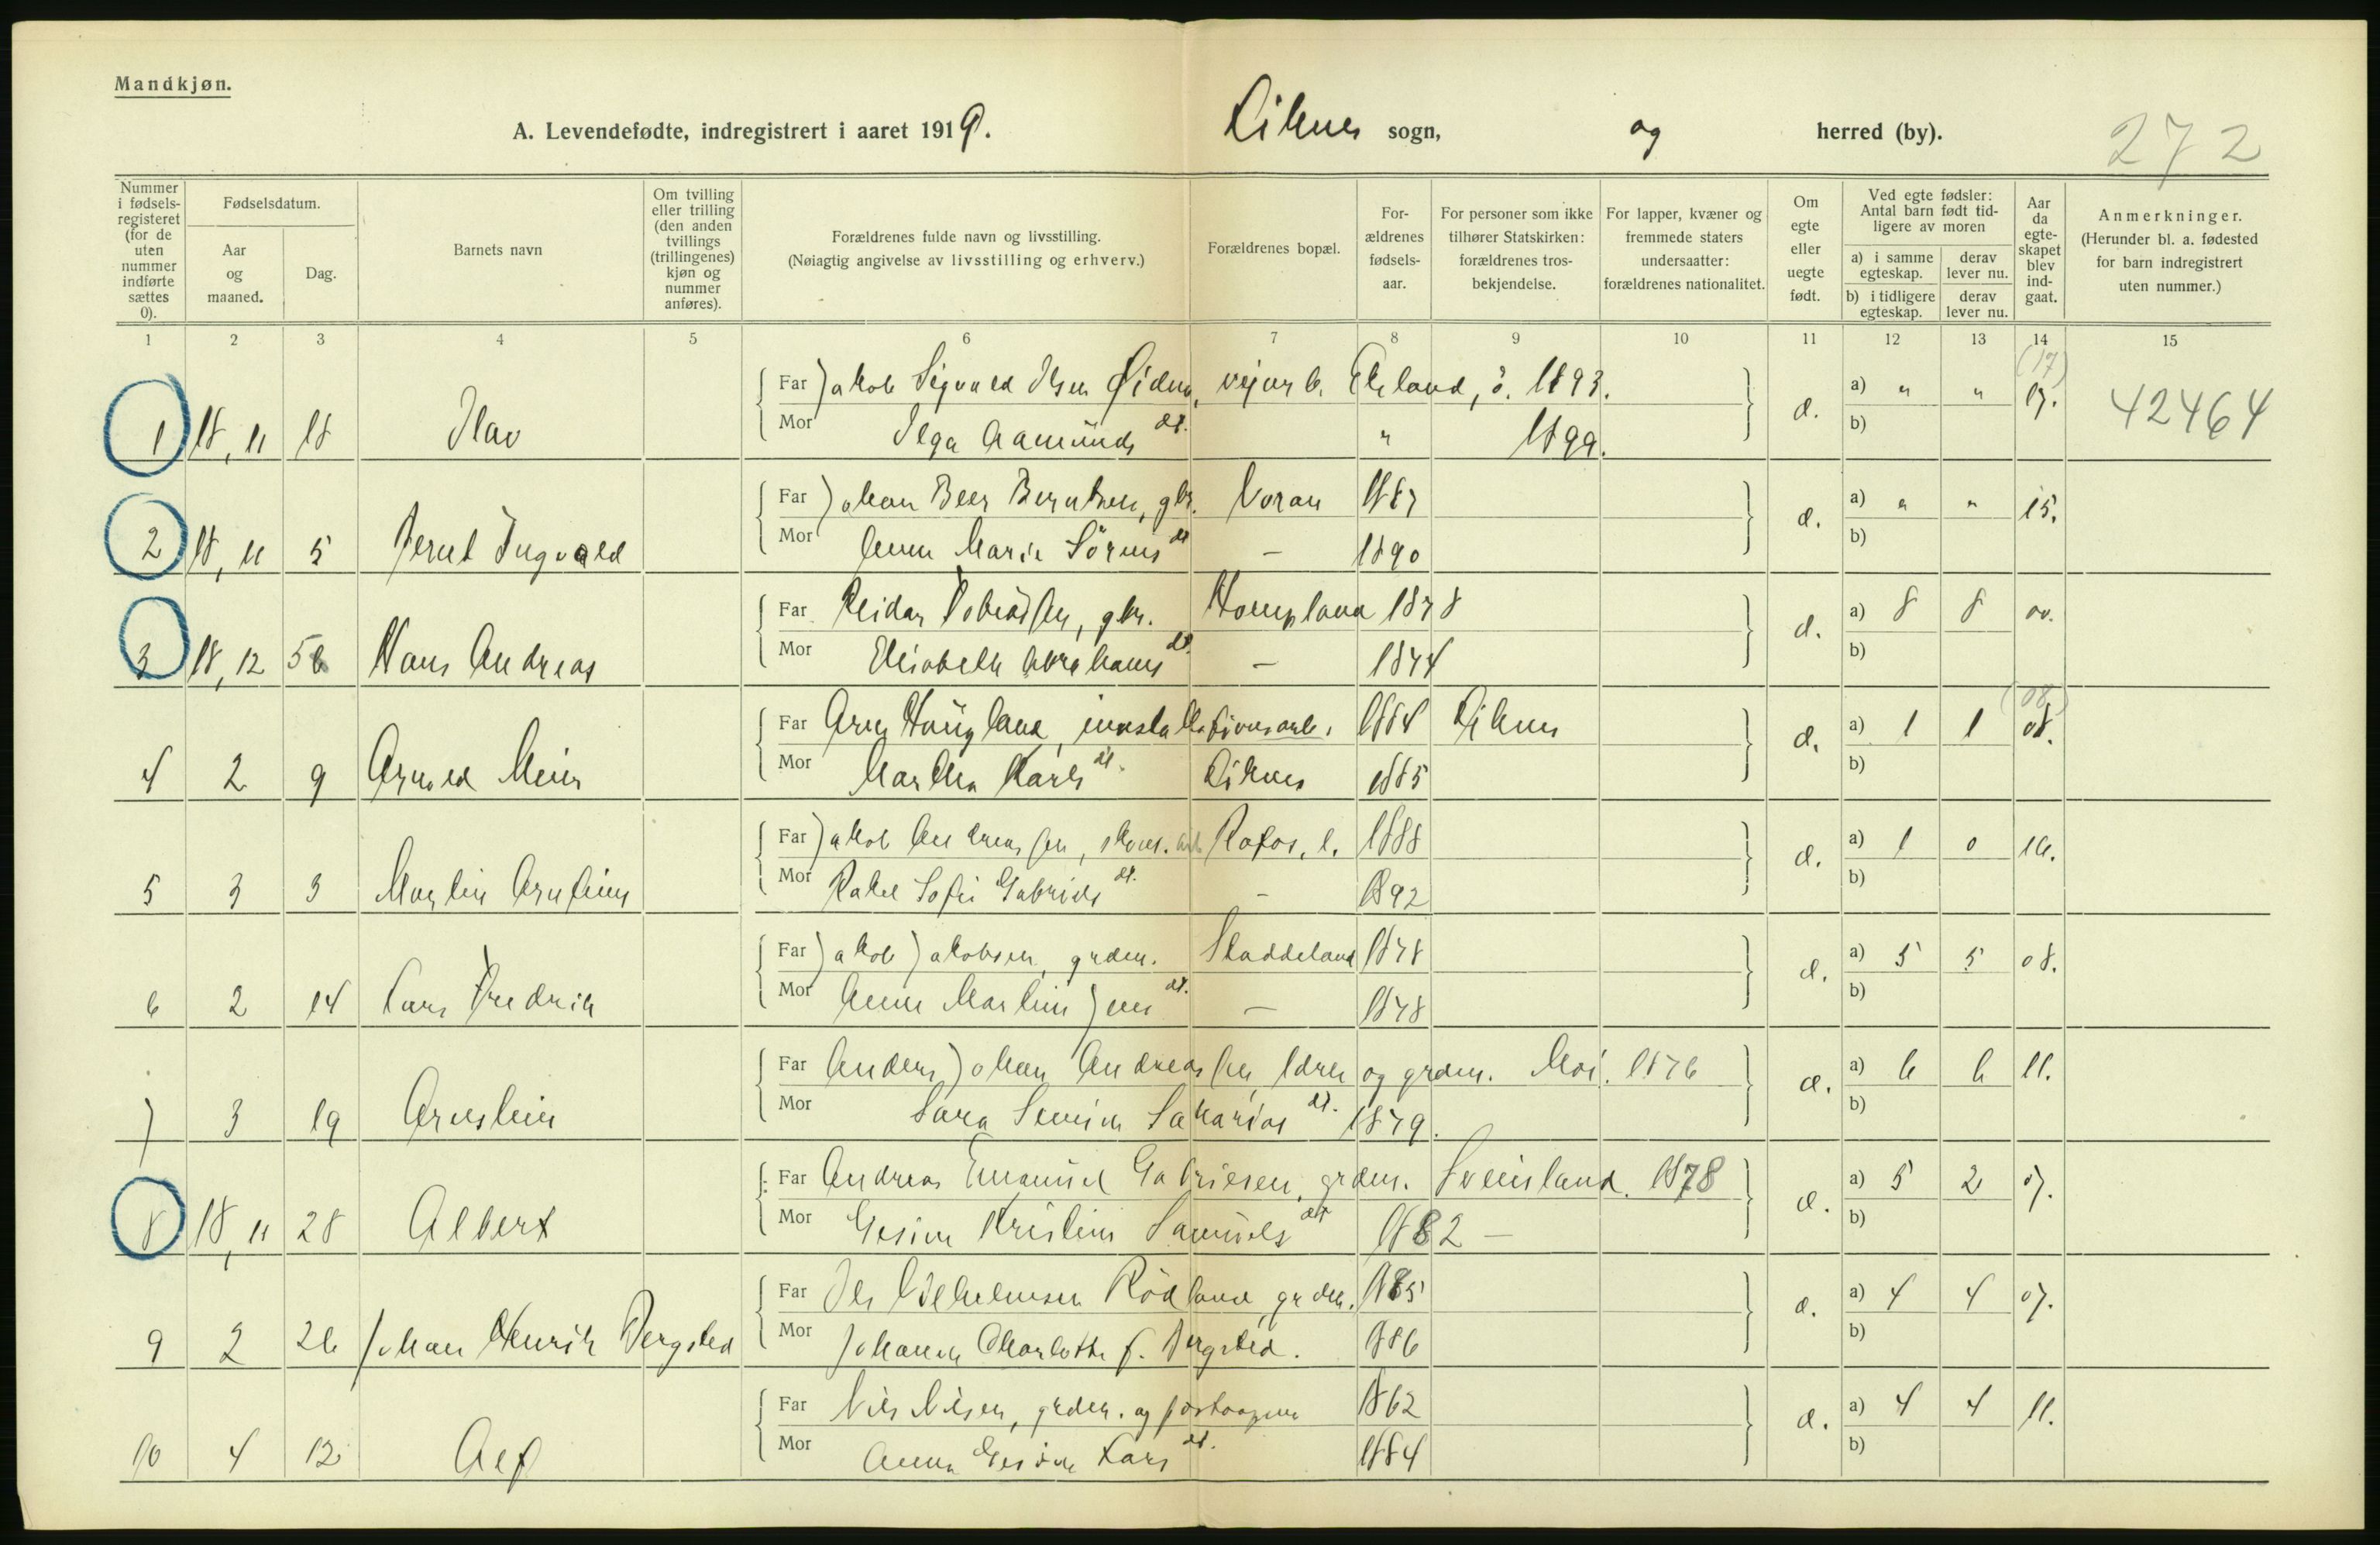 Mandkjøn.
A. Levendefødte, indregistrert i aaret 1919. Liknes sogn, og herred (by). 272
Nummer i fødsels-registeret (for de uten nummer indførte sættes 0).
Fødselsdatum.
Aar og maaned.
Dag.
Barnets navn
Om tvilling eller trilling (den anden tvillings (trillingenes) kjøn og nummer anføres).
Forældrenes fulde navn og livsstilling. (Nøiagtig angivelse av livsstilling og erhverv.)
Forældrenes bopæl.
For-ældrenes fødsels-aar.
For personer som ikke tilhører Statskirken: forældrenes tros-bekjendelse.
For lapper, kvæner og fremmede staters undersaatter: forældrenes nationalitet.
Om egte eller uegte født.
Ved egte fødsler: Antal barn født tid-ligere av moren
a) i samme egteskap. derav lever nu.
b) i tidligere egteskap. derav lever nu.
Aar da egte-skapet blev ind-gaat.
Anmerkninger. (Herunder bl. a. fødested for barn indregistrert uten nummer.)
1 2 3 4 5 6 7 8 9 10 11 12 13 14 15
(17)
Far Jakob Sigvald Olsen Øidna, veiarb. Ekeland, ö. 1893. a) " " 17.
1 18, 11 18 Olav Mor Olga Aamunds dt. " 1899. æ. b) 42464
Far Johan Beer Berntsen, gbr. Voran 1887 a) " " 15.
2 18, 11 5 Bernt Ingvald Mor Anna Marie Sörens dt — 1890 æ. b)
Far Reidar Tobiassen, gbr. 1878 a) 8 8 00.
3 18, 12 Hans Andreas Mor Elisabeth Abrahams dt. — 1874 æ. b)
(08)
Far Arne Haugland, installationsarb. 1884 Liknes a) 1 1 08.
4 2 9 Arnold Mor Martha Karls dt. Liknes 1885 æ. b)
Far Jakob Andreassen, Rafos, l. 1888 a) 1 0 16.
5 3 3 Martin Mor Rakel Sofie Gabriels dt. — 1892 æ. b)
Far Jakob Jakobsen, grdm. Staddeland 1878 a) 5 5 08.
6 2 14 Lars Fredrik Mor Anne Martine Jens dt. — 1878 æ. b)
Far Anders Johan Andreassen, og grdm. Moi. 1876 a) 6 6 11.
7 3 19 Arnstein Mor Sara Sakarias dt. 1879. æ. b)
Far Andreas Emanuel Gabrielsen, grdm. Sveinsland. 1878 a) 5 2 07.
8 18, 11 28 Albert Mor Gesine Kristine Samuels dt 1882 — æ. b)
Far Ole Vilhelmsen Rödland, grdm. 1885 a) 4 4 07.
9 2 26 Johan Henrik Bergsted Mor Johanne Charlotte f. Bergsted. 1886 æ. b)
Far Nils Nilsen, grdm. og 1862 a) 4 4 11.
10 4 12 Alf Mor Anna Gesine Lars dt. 1884 æ. b)